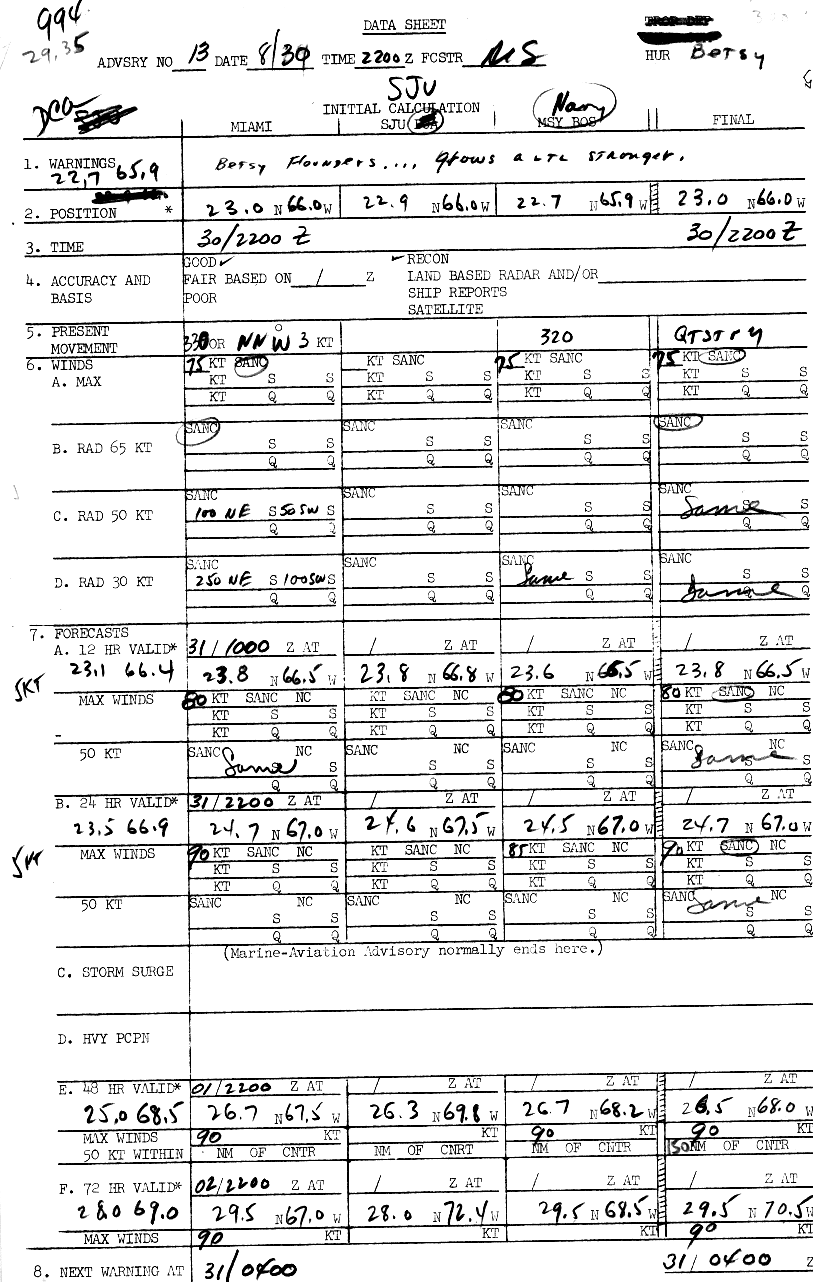 994
29.35
DATA SHEET
ADVSRY NO 13 DATE 8/30 TIME 2200 Z FCSTR
HUR Betsy
SJU
DCA
INITIAL CALCULATION
Navy
MIAMI SJU MSY BOS FINAL
1. WARNINGS Betsy Flounders... grows a LTL stronger.
22.7 65.9
2. POSITION * 23.0 N 66.0 W 22.9 N 66.0 W 22.7 N 65.9 W 23.0 N 66.0 W
3. TIME 30/2200 Z 30/2200 Z
GOOD ✓ ✓ RECON
4. ACCURACY AND FAIR BASED ON / Z LAND BASED RADAR AND/OR
BASIS POOR SHIP REPORTS
SATELLITE
5. PRESENT
MOVEMENT 330 OR NNW 3 KT 320 QTSTRY
6. WINDS 75 KT SANC KT SANC 75 KT SANC 75 KT SANC
A. MAX KT S S KT S S KT S S KT S S
KT Q Q KT Q Q KT Q Q KT Q Q
SANC SANC SANC SANC
B. RAD 65 KT S S S S S S S S
Q Q Q Q Q Q Q Q
SANC SANC SANC SANC
C. RAD 50 KT 100 NE S 50 SW S S S S S Same S S
Q Q Q Q Q Q Q Q
SANC SANC SANC SANC
D. RAD 30 KT 250 NE S 100 SW S S S Same S S Same S S
Q Q Q Q Q Q Q
7. FORECASTS
A. 12 HR VALID* 31/1000 Z AT / Z AT / Z AT / Z AT
23.1 66.4 23.8 N 66.5 W 23.8 N 66.8 W 23.6 N 66.5 W 23.8 N 66.5 W
5KT
MAX WINDS 80 KT SANC NC KT SANC NC 80 KT SANC NC 80 KT SANC NC
KT S S KT S S KT S S KT S S
KT Q Q KT Q Q KT Q Q KT Q Q
50 KT SANC NC SANC NC SANC NC SANC NC
Same S S S S S Same S S
Q Q Q Q Q Q Q Q
B. 24 HR VALID* 31/2200 Z AT / Z AT / Z AT / Z AT
23.5 66.9 24.7 N 67.0 W 24.6 N 67.5 W 24.5 N 67.0 W 24.7 N 67.0 W
MAX WINDS 90 KT SANC NC KT SANC NC 85 KT SANC NC 90 KT SANC NC
KT S S KT S S KT S S KT S S
KT Q Q KT Q Q KT Q Q KT Q Q
50 KT SANC NC SANC NC SANC NC SANC NC
S S S S S S Same S S
Q Q Q Q Q Q Q Q
(Marine-Aviation Advisory normally ends here.)
C. STORM SURGE
D. HVY PCPN
E. 48 HR VALID* 01/2200 Z AT / Z AT / Z AT / Z AT
25.0 68.5 26.7 N 67.5 W 26.3 N 69.8 W 26.7 N 68.2 W 26.5 N 68.0 W
MAX WINDS 90 KT KT 90 KT 90 KT
50 KT WITHIN NM OF CNTR NM OF CNRT NM OF CNTR 150 NM OF CNTR
F. 72 HR VALID* 02/2200 Z AT / Z AT / Z AT / Z AT
28.0 69.0 29.5 N 67.0 W 28.0 N 72.4 W 29.5 N 68.5 W 29.5 N 70.5 W
MAX WINDS 90 KT KT KT 90 KT
8. NEXT WARNING AT 31/0400 31/0400 Z